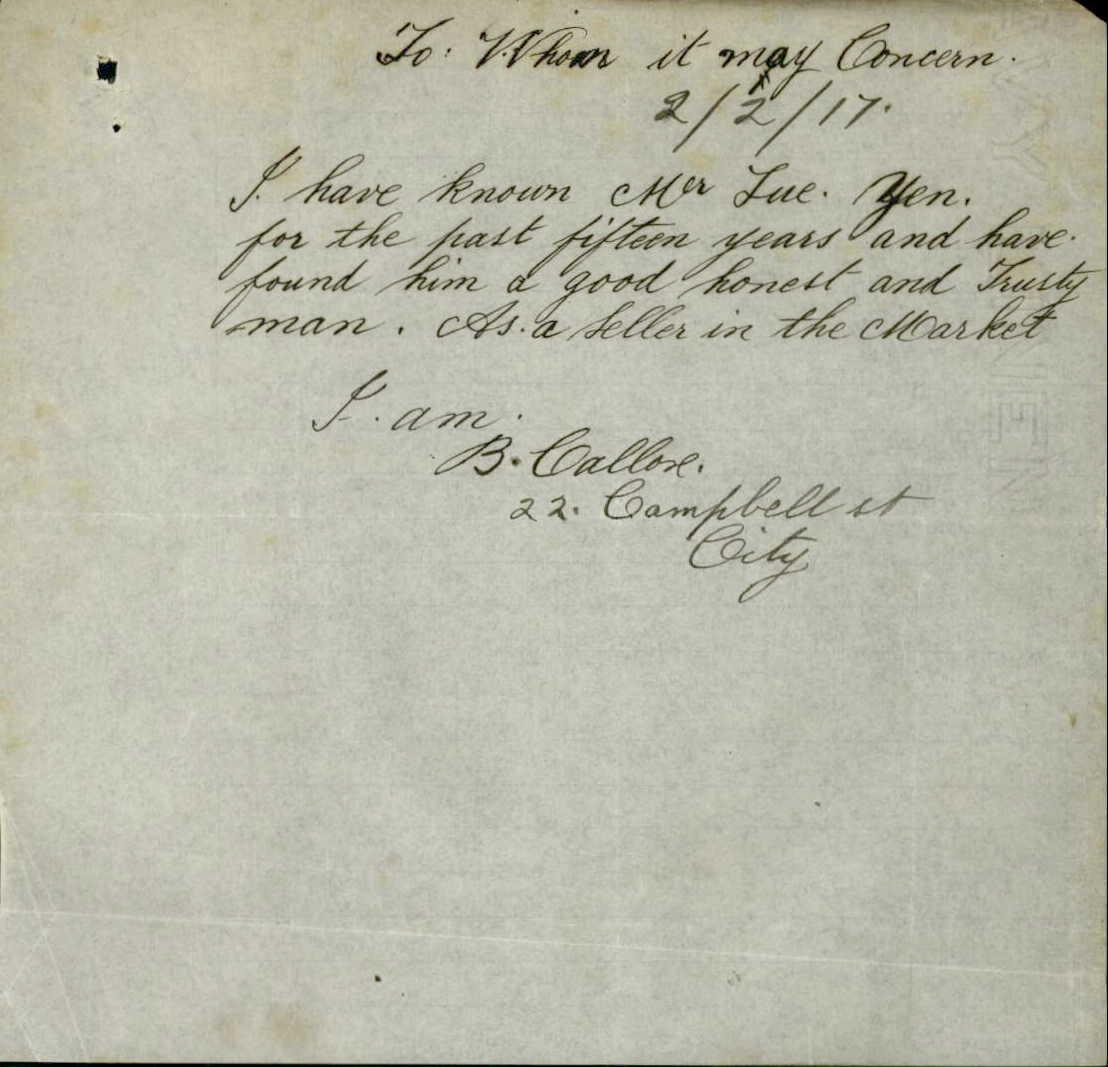 To: Whom it may Concern.
2/2/17.
I. have known Mr Lue. Yen.
for the past fifteen years and have.
found him a good honest and Trusty
man. As. a Seller in the Market
I. am.
B. Callose.
22. Campbell st
City